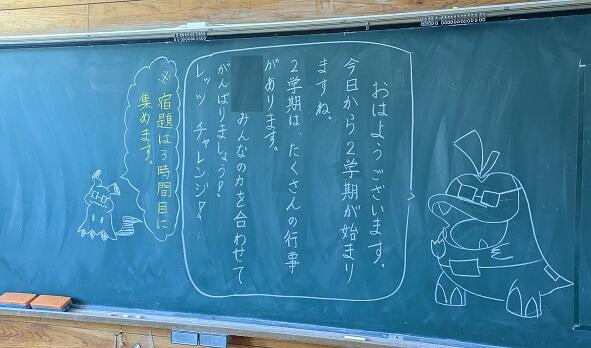 おはようございます。
今日から2学期が始まり
ますね。
2学期は、たくさんの行事
があります。
みんなの力を合わせて
がんばりましょう!
レッツ チャレンジ!
※宿題は3時間目に
集めます。